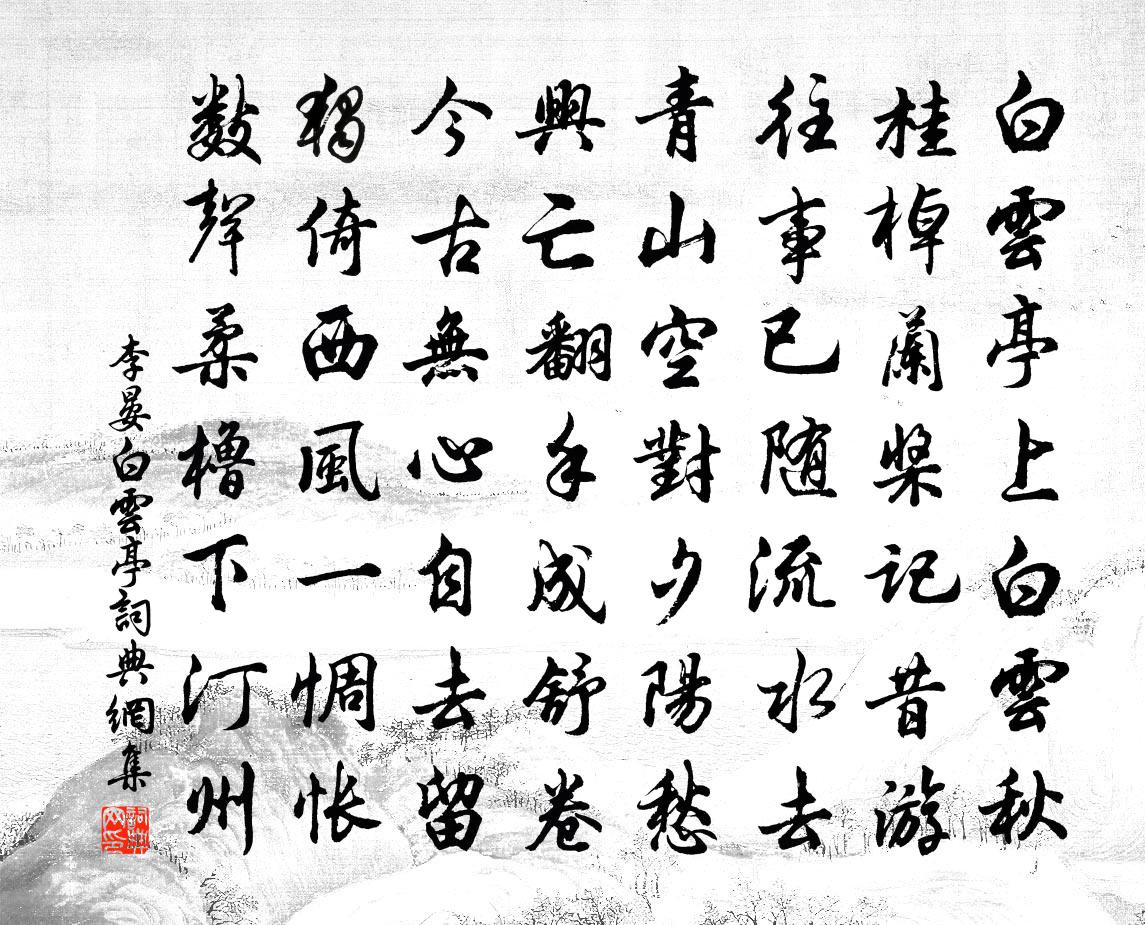 白雲亭上白雲秋
桂棹蘭槳記昔游
往事已随流水去
青山空對夕陽愁
興亡翻手成舒卷
今古無心自去留
獨倚西風一惆悵
數聲柔櫓下汀州
李晏白雲亭詞典網集
詞典網印